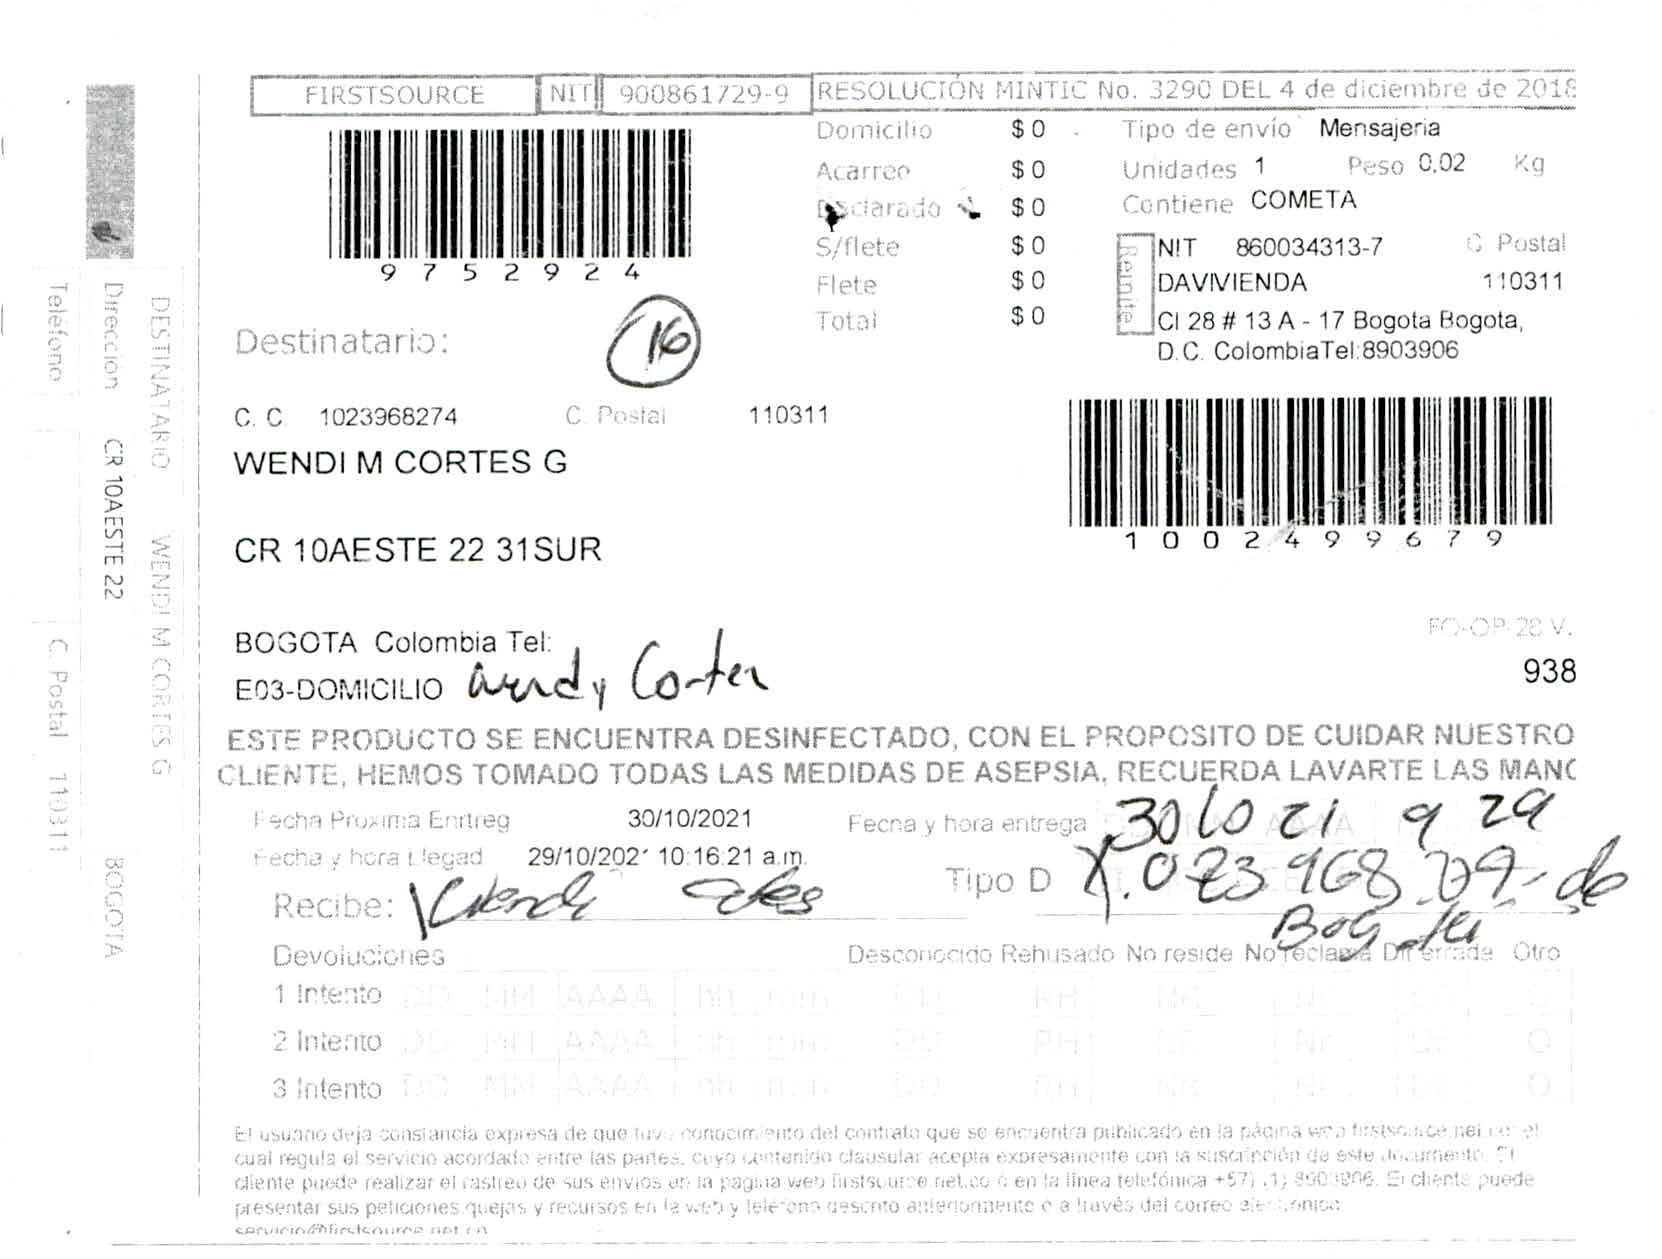 FIRSTSOURCE NIT 900861729-9 RESOLUCIÓN MINTIC No. 3290 DEL 4 de diciembre de 2018
Domicilio $ 0 Tipo de envío Mensajeria
Acarreo $ 0 Unidades 1 Peso 0,02 Kg
Declarado $ 0 Contiene COMETA
S/flete $ 0
Flete $ 0
Total $ 0
9752924
Remite
NIT 860034313-7 C Postal
DAVIVIENDA 110311
Cl 28 # 13 A - 17 Bogota Bogota,
D.C. ColombiaTel:8903906
Destinatario:
16
C. C. 1023968274 C. Postal 110311
WENDI M CORTES G
1002499679
CR 10AESTE 22 31SUR
BOGOTA Colombia Tel:
E03-DOMICILIO Wendy Cortes
FO-OP-28 V.
938
ESTE PRODUCTO SE ENCUENTRA DESINFECTADO, CON EL PROPOSITO DE CUIDAR NUESTRO
CLIENTE, HEMOS TOMADO TODAS LAS MEDIDAS DE ASEPSIA, RECUERDA LAVARTE LAS MANO
Fecha Proxima Enrtreg 30/10/2021 Fecha y hora entrega 30 10 21 9 29
Fecha y hora Llegad 29/10/2021 10:16:21 a.m.
Recibe: Wendi Cortes Tipo D de
Bogota
Devoluciones Desconocido Rehusado No reside No reclama Dir errada Otro
1 Intento DD MM AAAA hh mm DD RH NR NR O
2 Intento DD MM AAAA hh mm DD RH NR Nr O
3 Intento DD MM AAAA hh mm DD RH NR Nr O
El usuario deja constancia expresa de que tuvo conocimiento del contrato que se encuentra publicado en la página web firstsource.net.co el
cual regula el servicio acordado entre las partes, cuyo contenido clausular acepta expresamente con la suscripción de este documento. El
cliente puede realizar el rastreo de sus envios en la pagina web firstsource.net.co o en la línea telefónica +57) 1) 8903906. El cliente puede
presentar sus peticiones quejas y recursos en la web y teléfono descrito anteriormente o a través del correo electrónico
servicio@firstsource.net.co
Teléfono C. Postal 110311
Dirección CR 10AESTE 22 BOGOTA
DESTINATARIO WENDI M CORTES G